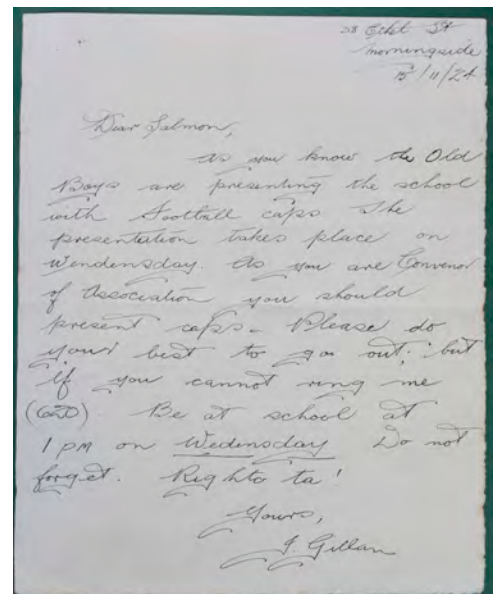 28 Ethel St
morningside
15/11/24
Dear Salmon,
As you know the Old
Boys are presenting the school
with Football caps The
presentation takes place on
Wendensday. As you are Convenor
of Association you should
present caps. Please do
your best to go out; but
if you cannot ring me
Be at school at
1 PM on Wedensday Do not
forget. Righto ta!
Yours,
J. Gillan